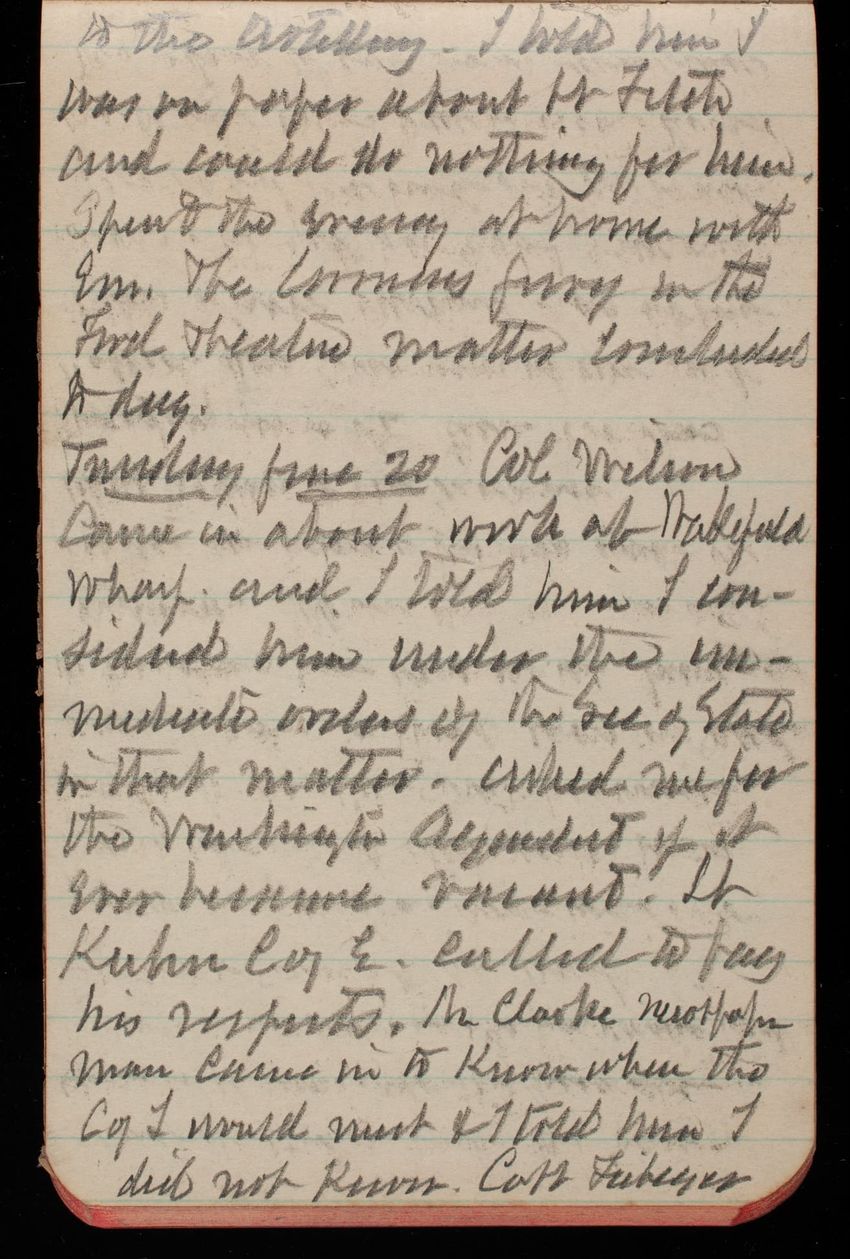 to the Artillery. I told him I
was on paper about Lt
and could do nothing for him.
Spent the Evening at home with
Em. The Coroners Jury in the
Ford Theatre matter concluded
to day.
Tuesday June 20 Col Wilson
Came in about work at Wakefield
Wharf. and I told him I con-
sidered him under the im-
mediate orders of the Sec of State
in that matter. asked me for
the Washington Aqueduct if it
Ever became vacant. Lt
Kuhn Co E. called to pay
his respects. Mr Clarke newspaper
man came in to Know when the
would meet & I told him I
did not Know. Capt Fiebeger